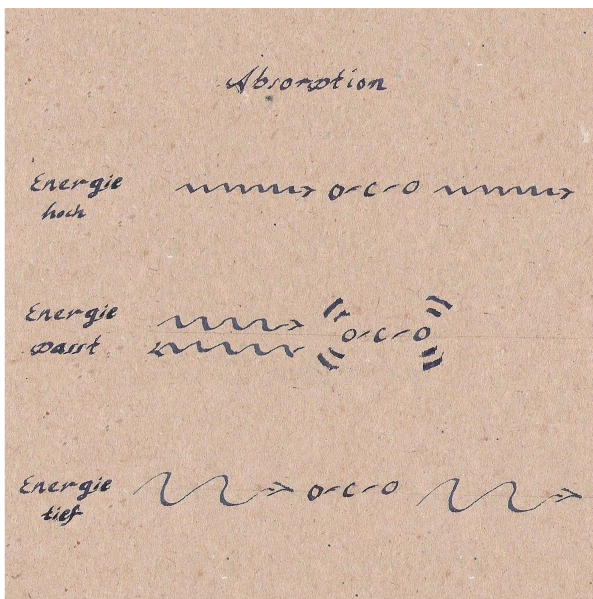 Absorption
Energie
hoch
O-C-O
Energie
passt
O-C-O
Energie
tief
O-C-O